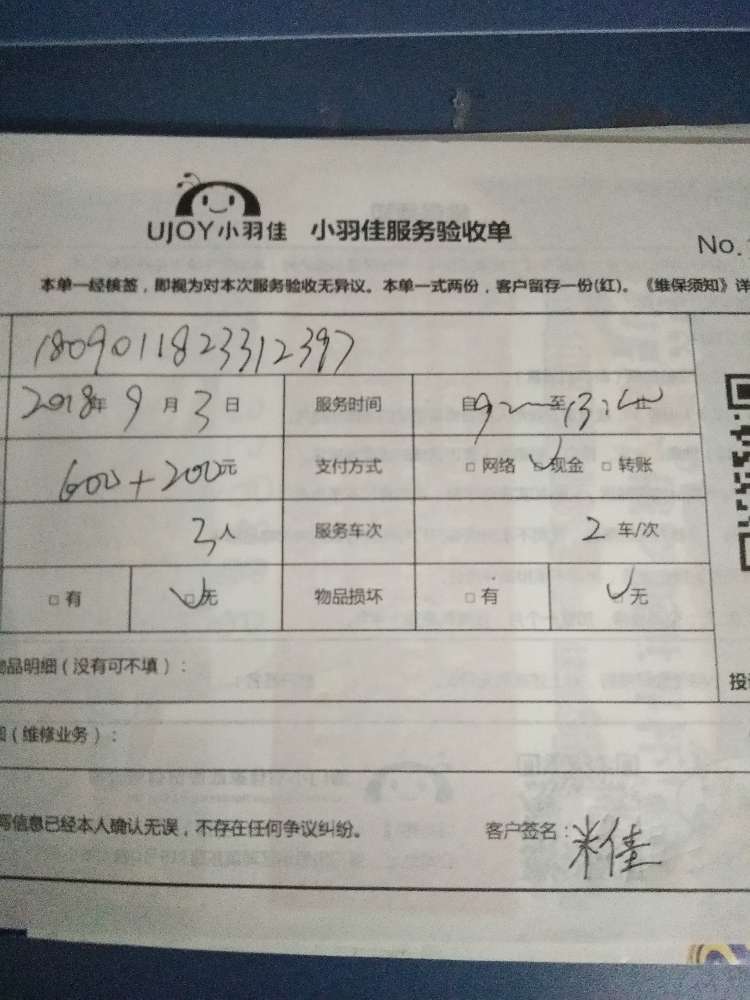 UJOY小羽佳 小羽佳服务验收单
No.
本单一经核签，即视为对本次服务验收无异议。本单一式两份，客户留存一份(红)。《维保须知》详
1809011823312397
2018年 9 月 3 日 服务时间 自 至
600+200元 支付方式 □ 网络 □ 现金 □ 转账
3人 服务车次 2 车/次
□ 有 □ 无 物品损坏 □ 有 □ 无
物品明细（没有可不填）：
投诉
（维修业务）：
信息已经本人确认无误，不存在任何争议纠纷。 客户签名：米佳